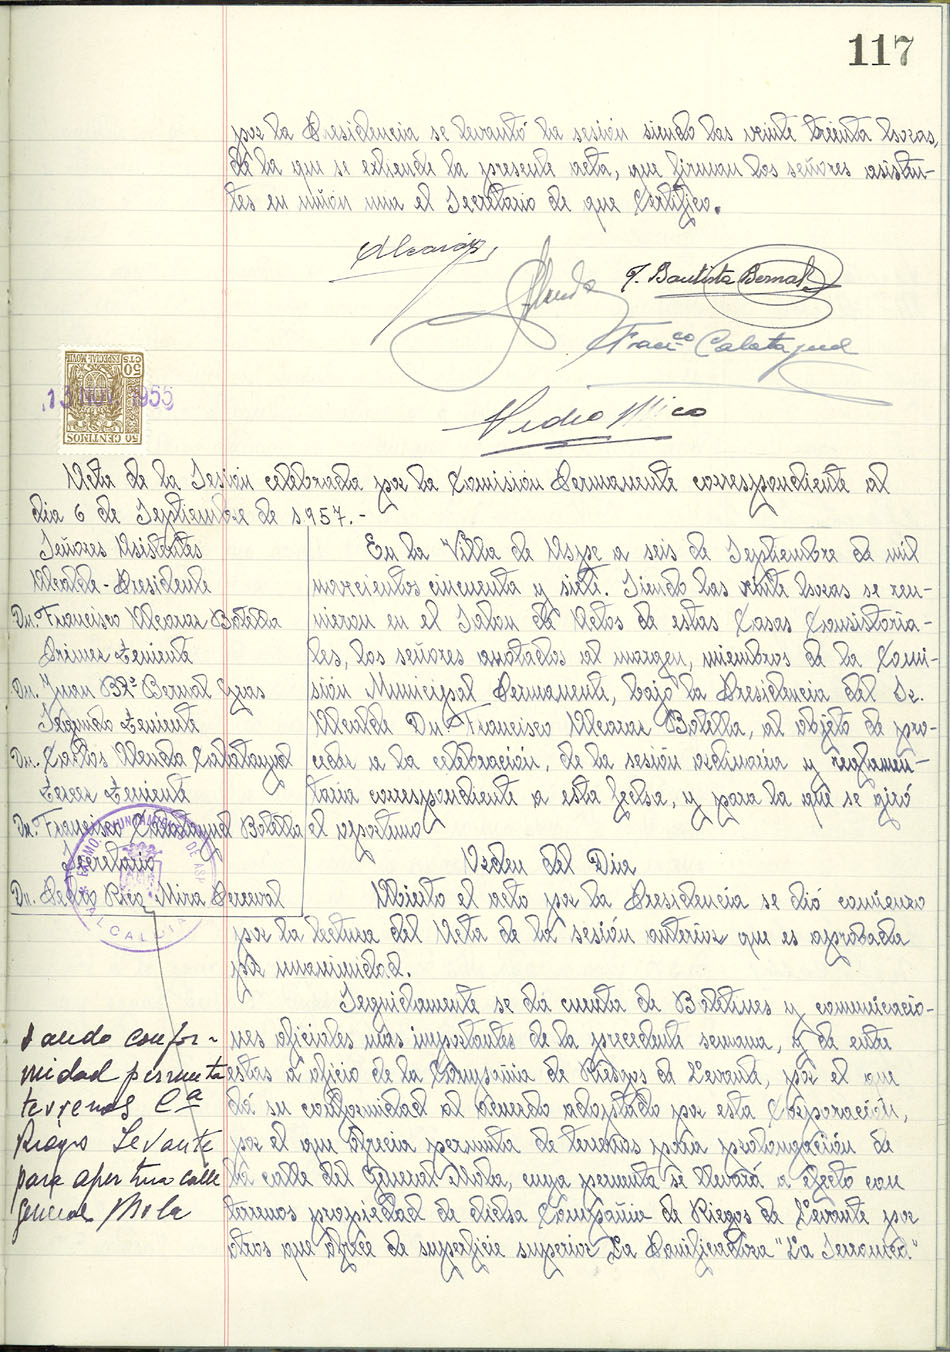 117
por la Presidencia se levantó la sesión siendo las veinte treinta horas,
de la que se extiende la presente acta, que firman los señores asisten-
tes en unión mia el Secretario de que Certifico.
J. Bautista Bernal
Franco Calatayud
Pedro Rico
50 CTS
ESPECIAL MOVIL
50 CENTIMOS
13 NOV. 1955
Acta de la Sesión celebrada por la Comisión Permanente correspondiente al
dia 6 de Septiembre de 1957.-
Señores Asistentes
Alcalde-Presidente
Dn. Francisco Alcaraz Botella
Primer Teniente
Dn. Juan Bta. Bernal
Segundo Teniente
Dn. Carlos Alenda Calatayud
Tercer Teniente
Dn. Francisco Calatayud Botella
Secretario
Dn. Pedro Rico Mira Perceval
En la Villa de Aspe a seis de Septiembre de mil
novecientos cincuenta y siete. Siendo las veinte horas se reu-
nieron en el Salon de Actos de estas Casas Consistoria-
les, los señores anotados al margen, miembros de la Comi-
sión Municipal Permanente, bajo la Presidencia del Sr.
Alcalde Dn. Francisco Alcaraz Botella, al objeto de pro-
ceder a la celebración, de la sesión ordinaria y reglamen-
taria correspondiente a esta fecha, y para la que se giró
el oportuno
Orden del Dia
Abierto el acto por la Presidencia se dió comienzo
por la lectura del Acta de la sesión anterior que es aprobada
por unanimidad.
Seguidamente se dia cuenta de Boletines y comunicacio-
nes oficiales mas importantes de la precedente semana, y de entre
estas a oficio de la Compañia de Riegos de Levante, por el que
dá su conformidad al acuerdo adoptado por esta Corporación,
por el que ofrecia permuta de terrenos para prolongación de
la calle del General Mola, cuya permuta se llevará a efecto con
terrenos propiedad de dicha Compañia de Riegos de Levante por
otros que ofrece de superficie superior La Panificadora "La Serranica"
dando confor-
midad permuta
terrenos Ca
Riegos Levante
para apertura calle
General Mola
ALCALDIA